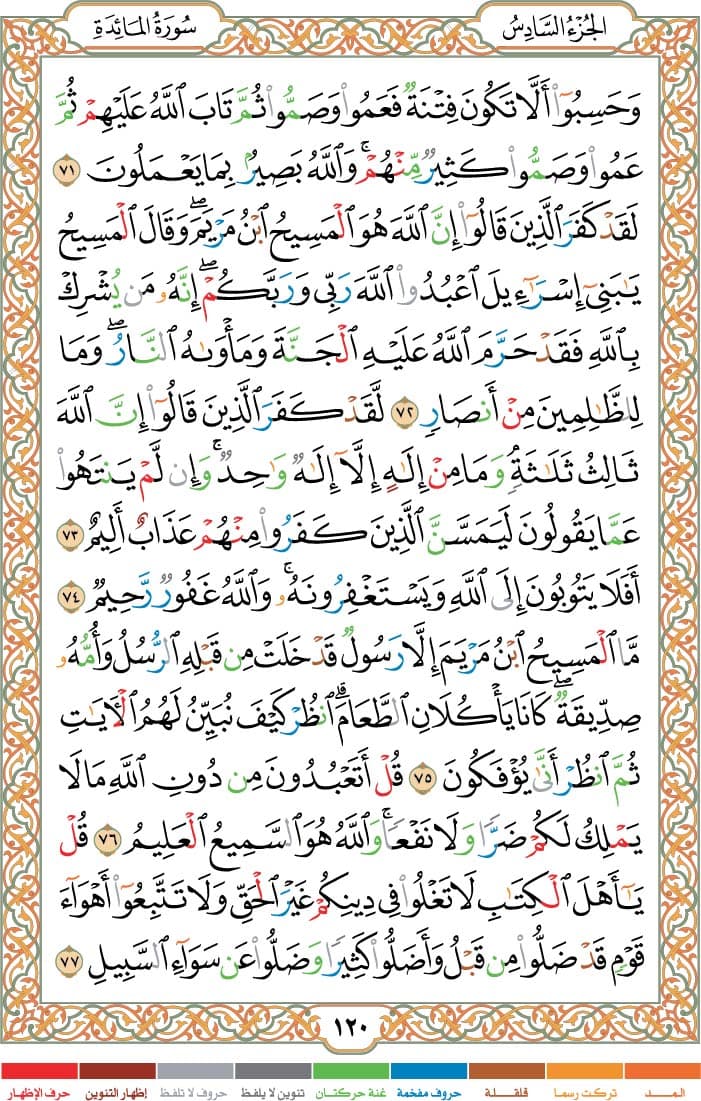 الجُزْءُ السَّادِسُ
سُورَةُ المَائِدَةِ
وَحَسِبُوٓا۟ أَلَّا تَكُونَ فِتْنَةٌ فَعَمُوا۟ وَصَمُّوا۟ ثُمَّ تَابَ ٱللَّهُ عَلَيْهِمْ ثُمَّ
عَمُوا۟ وَصَمُّوا۟ كَثِيرٌ مِّنْهُمْ ۚ وَٱللَّهُ بَصِيرٌۢ بِمَا يَعْمَلُونَ ٧١
لَقَدْ كَفَرَ ٱلَّذِينَ قَالُوٓا۟ إِنَّ ٱللَّهَ هُوَ ٱلْمَسِيحُ ٱبْنُ مَرْيَمَ ۖ وَقَالَ ٱلْمَسِيحُ
يَٰبَنِىٓ إِسْرَٰٓءِيلَ ٱعْبُدُوا۟ ٱللَّهَ رَبِّى وَرَبَّكُمْ ۖ إِنَّهُۥ مَن يُشْرِكْ
بِٱللَّهِ فَقَدْ حَرَّمَ ٱللَّهُ عَلَيْهِ ٱلْجَنَّةَ وَمَأْوَىٰهُ ٱلنَّارُ ۖ وَمَا
لِلظَّٰلِمِينَ مِنْ أَنصَارٍ ٧٢ لَّقَدْ كَفَرَ ٱلَّذِينَ قَالُوٓا۟ إِنَّ ٱللَّهَ
ثَالِثُ ثَلَٰثَةٍ ۘ وَمَا مِنْ إِلَٰهٍ إِلَّآ إِلَٰهٌ وَٰحِدٌ ۚ وَإِن لَّمْ يَنتَهُوا۟
عَمَّا يَقُولُونَ لَيَمَسَّنَّ ٱلَّذِينَ كَفَرُوا۟ مِنْهُمْ عَذَابٌ أَلِيمٌ ٧٣
أَفَلَا يَتُوبُونَ إِلَى ٱللَّهِ وَيَسْتَغْفِرُونَهُۥ ۚ وَٱللَّهُ غَفُورٌ رَّحِيمٌ ٧٤
مَّا ٱلْمَسِيحُ ٱبْنُ مَرْيَمَ إِلَّا رَسُولٌ قَدْ خَلَتْ مِن قَبْلِهِ ٱلرُّسُلُ وَأُمُّهُۥ
صِدِّيقَةٌ ۖ كَانَا يَأْكُلَانِ ٱلطَّعَامَ ۗ ٱنظُرْ كَيْفَ نُبَيِّنُ لَهُمُ ٱلْءَايَٰتِ
ثُمَّ ٱنظُرْ أَنَّىٰ يُؤْفَكُونَ ٧٥ قُلْ أَتَعْبُدُونَ مِن دُونِ ٱللَّهِ مَا لَا
يَمْلِكُ لَكُمْ ضَرًّا وَلَا نَفْعًا ۚ وَٱللَّهُ هُوَ ٱلسَّمِيعُ ٱلْعَلِيمُ ٧٦ قُلْ
يَٰٓأَهْلَ ٱلْكِتَٰبِ لَا تَغْلُوا۟ فِى دِينِكُمْ غَيْرَ ٱلْحَقِّ وَلَا تَتَّبِعُوٓا۟ أَهْوَآءَ
قَوْمٍ قَدْ ضَلُّوا۟ مِن قَبْلُ وَأَضَلُّوا۟ كَثِيرًا وَضَلُّوا۟ عَن سَوَآءِ ٱلسَّبِيلِ ٧٧
١٢٠
المــد تركت رسما قلقلة حروف مفخمة غنة حركتان تنوين لا يلفظ حروف لا تلفظ إظهار التنوين حرف الإظهار